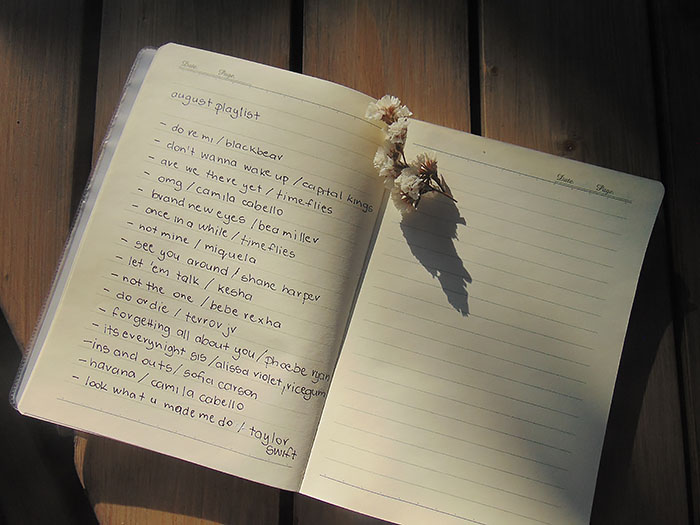 Date. Page.
august playlist
- do re mi / blackbear
- don't wanna wake up / capital kings
- are we there yet / timeflies
- omg / camila cabello
- brand new eyes / bea miller
- once in a while / timeflies
- not mine / miquela
- see you around / shane harper
- let 'em talk / kesha
- not the one / bebe rexha
- do or die / terror jr
- forgetting all about you / phoebe ryan
- its everynight sis / alissa violet, ricegum
- ins and outs / sofia carson
- havana / camila cabello
- look what u made me do / taylor
swift
Date. Page.